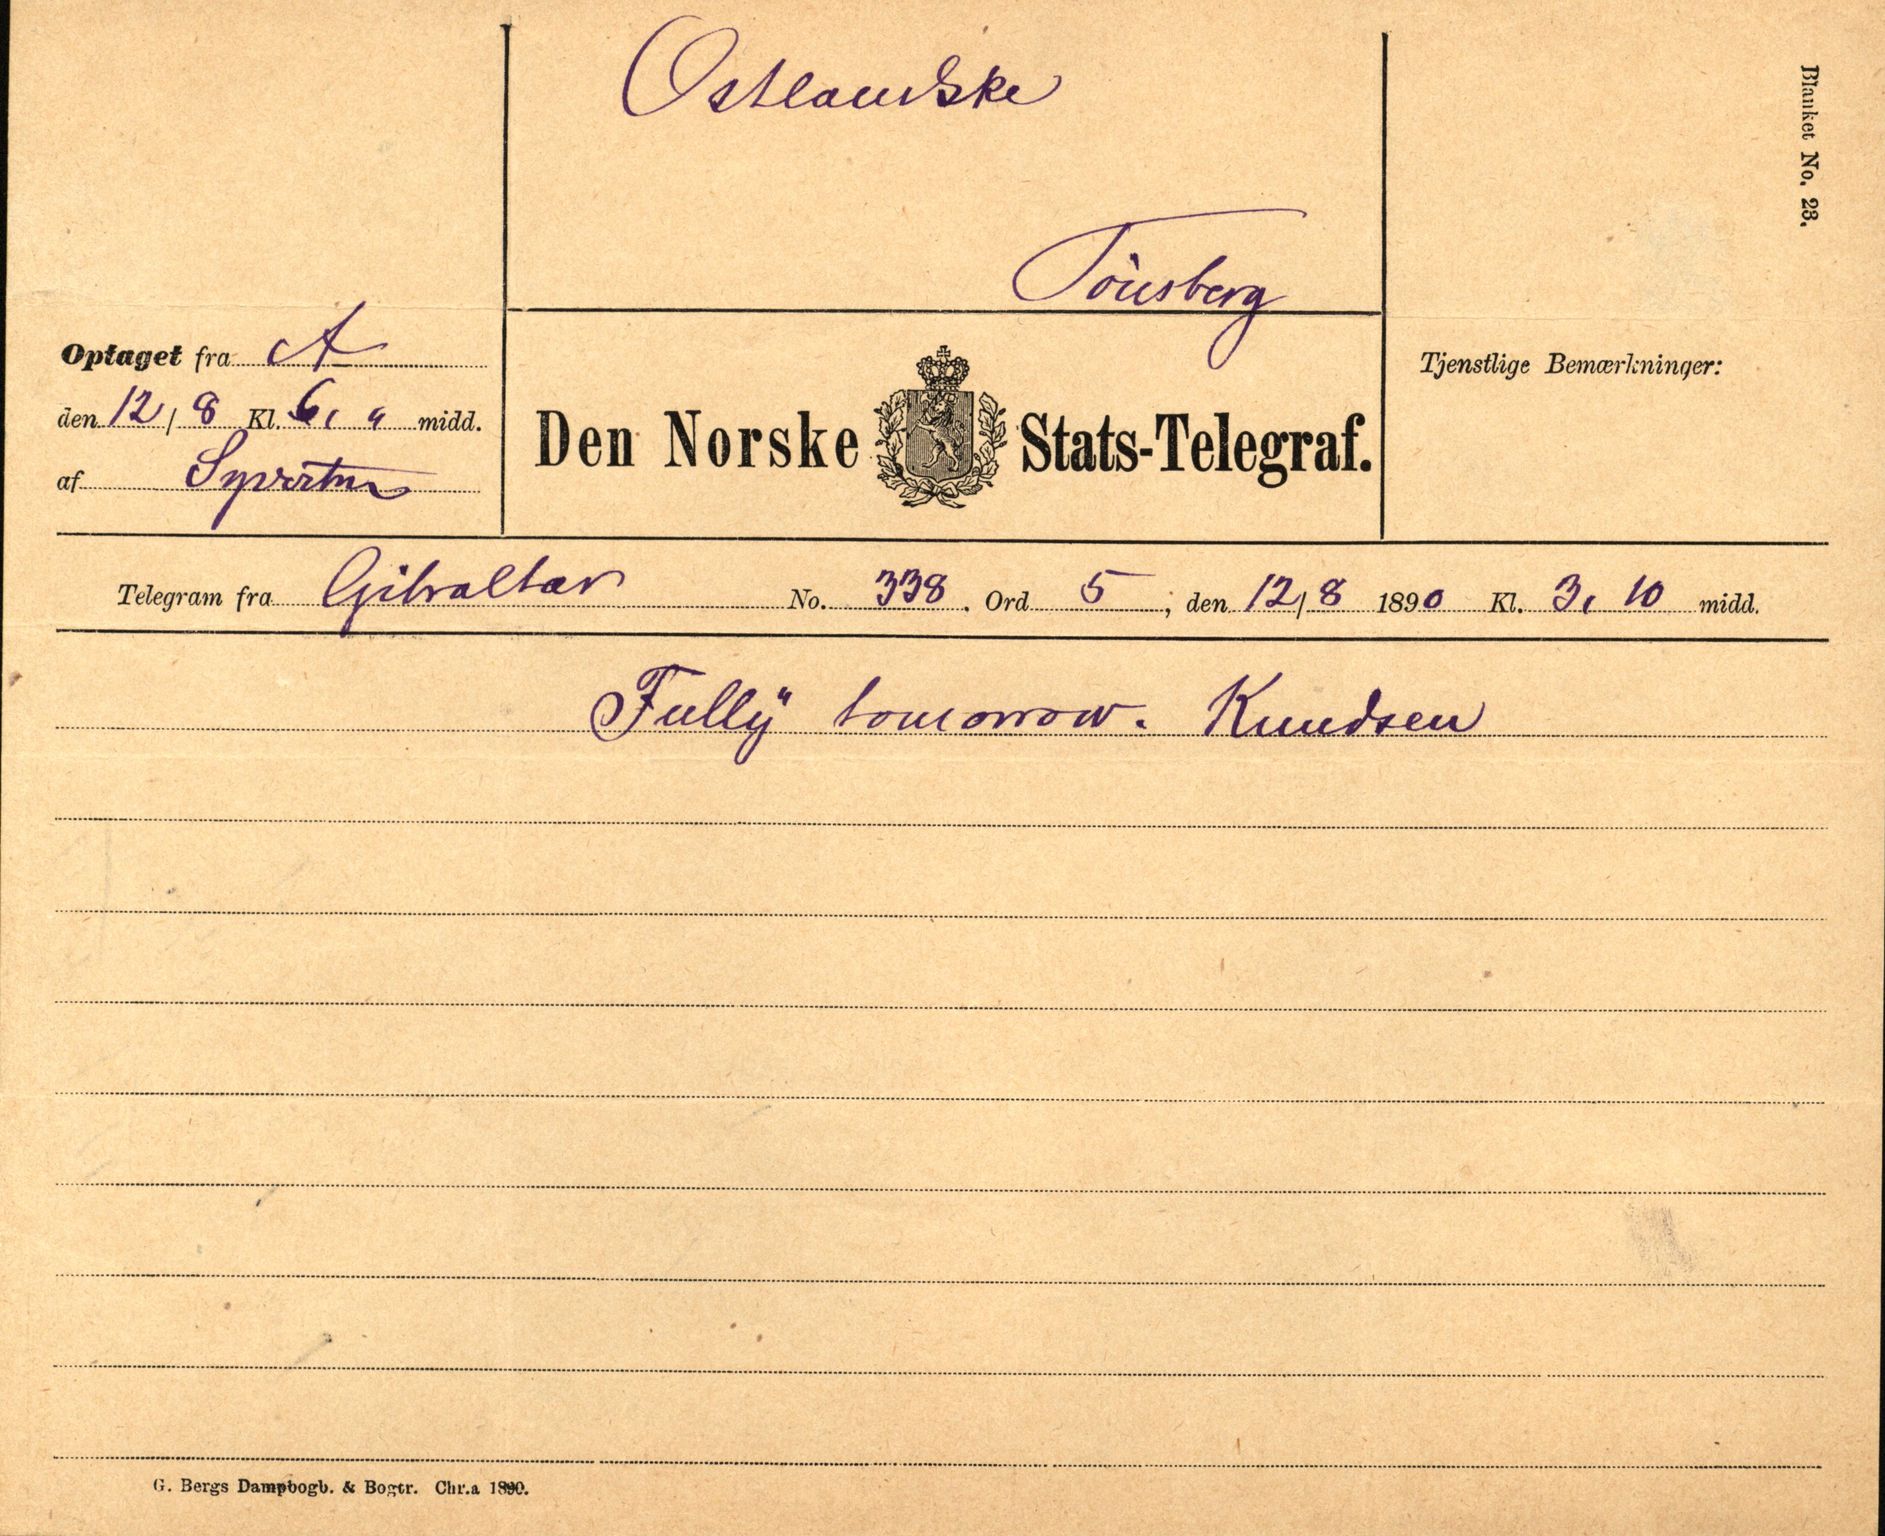 Ostlandske
Blanket No. 23.
Tönsberg
Optaget fra A
den 12/8 Kl. 6, " midd.
af Syvertsen
Den Norske Stats-Telegraf.
Tjenstlige Bemærkninger:
Telegram fra Gibraltar No. 338. Ord 5, den 12/8 1890 Kl. 3, 10 midd.
Fullÿ tomorrow. Knudsen
G. Bergs Dampbogb. & Bogtr. Chr.a 1890.